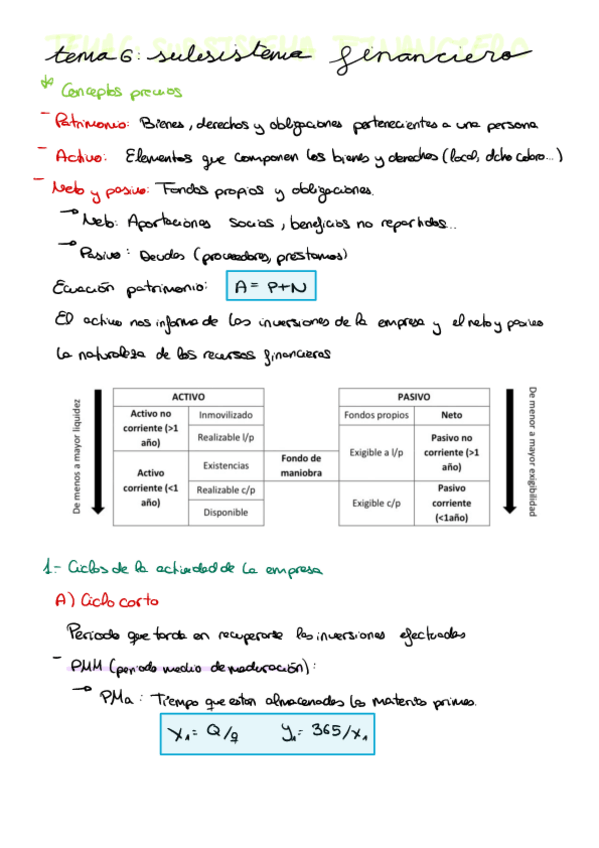 tema 6: subsistema financiero
Conceptos previos
- Patrimonio: Bienes, derechos y obligaciones pertenecientes a una persona
- Activo: Elementos que componen los bienes y derechos (local, dcho cobro...)
- Neto y pasivo: Fondos propios y obligaciones.
→ Neto: Aportaciones socios, beneficios no repartidos...
→ Pasivo: Deudas (proveedores, préstamos)
Ecuación patrimonio: A = P+N
El activo nos informa de las inversiones de la empresa y el neto y pasivo
la naturaleza de los recursos financieros
De menos a mayor liquidez
ACTIVO
Activo no corriente (>1 año)
Inmovilizado
Realizable l/p
Activo corriente (<1 año)
Existencias
Realizable c/p
Disponible
Fondo de maniobra
PASIVO
Fondos propios
Neto
Exigible a l/p
Pasivo no corriente (>1 año)
Exigible c/p
Pasivo corriente (<1año)
De menor a mayor exigibilidad
1.- Ciclos de la actividad de la empresa
A) Ciclo corto
Periodo que tarda en recuperarse las inversiones efectuadas
- PMM (periodo medio de maduración):
→ PMa: Tiempo que estan almacenadas las materias primas.
x₁= Q/q y₁= 365/x₁